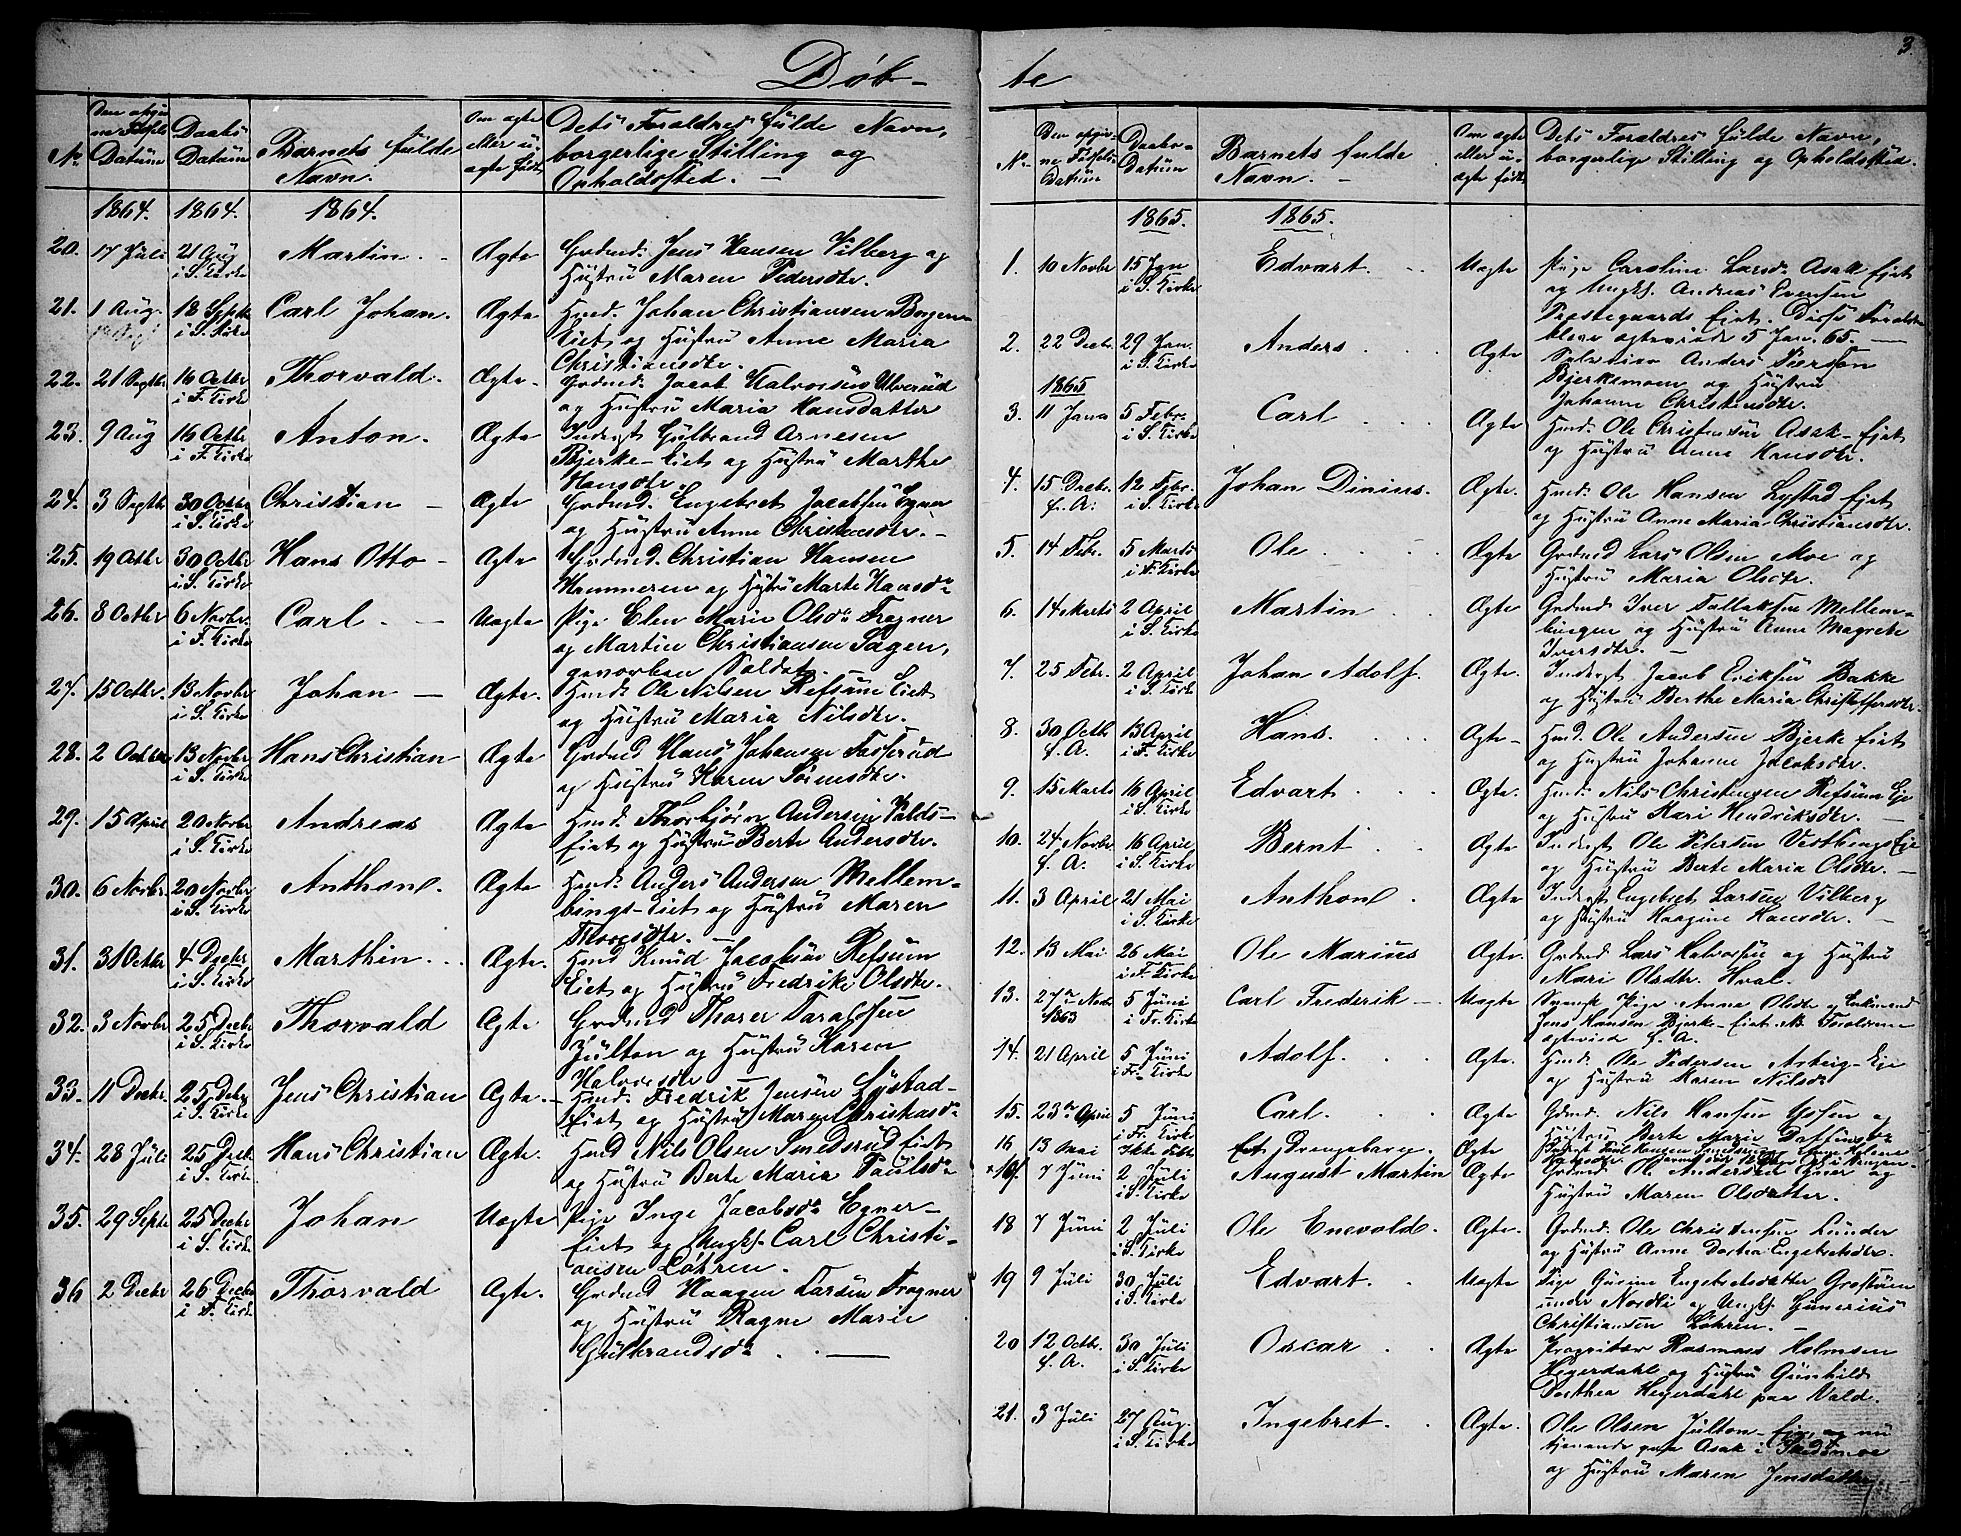 Døb-
No
Datum
Daabs
Datum
Barnets fulde
Navn.
Om ægte
eller u-
ægte født
Dets Foraldres fulde Navn,
borgerlige Stilling og
Opholdssted. -
1864. 1864. 1864.
20. 17 Juli 21 Aug Martin. - Ægte Grdmd. Jens Hansen Vilberg og
i S. Kirke Hustru Maren Pedersdtr.
21. 1 Aug. 18 Septbr Carl Johan. Ægte Hmd. Johan Christiansen Borgen-
i S. Kirke Eiet og Hustru Anne Maria
Christiansdtr.
22. 21 Septbr 16 Octbr Thorvald. Ægte- Grdmd. Jacob Halvorsen Ulverud
i F. Kirke og Hustru Maria Hansdatter
23. 9 Aug 16 Octbr Anton. Ægte Inderst Gulbrand Arnesen
i F. Kirke Bjerke-Eiet og Hustru Marthe
Hansdtr.
24. 3 Septbr 30 Octbr Christian - Ægte Grdmd. Engebret Jacobsen Egner
i S. Kirke og Hustru Anne Christensdtr. -
25. 19 Octbr 30 Octbr Hans Otto - Ægte Grdmd. Christian Hansen
i S. Kirke Hammeren og Hustru Marte Hansdr
26. 8 Octbr 6 Novbr. Carl. - Uægte Pige Elen Marie Olsdr Fragner
i F. Kirke og Martin Christiansen Sagen,
gevorben Soldat.
27. 15 Octbr. 13 Novbr Johan - Ægte. Hmd. Ole Nilsen Refsum Eiet
i S. Kirke og Hustru Maria Nilsdtr.
28. 2 Octbr 13 Novbr Hans Christian Ægte Grdmd Hans Johansen Fosserud
i S. Kirke og Hustru Karen Sørensdtr.
29. 15 April 20 Novbr Andreas Ægte Hmd. Thorbjørn Andersen Valds-
i S. Kirke Eiet og Hustru Berte Andersdtr.
30. 6 Novbr 20 Novbr Anthon. Ægte Hmd. Anders Andersen Mellem-
i S. Kirke bings-Eiet og Hustru Maren
Thoresdtr. -
31. 31 Octbr 4 Decbr Marthin. Ægte. Hmd Knud Jacobsen Refsum
i S. Kirke Eiet og Hustru Fredrike Olsdtr.
32. 3 Novbr 25 Decbr Thorvald Ægte Grdmd Thorer Taraldsen
i S. Kirke Julton og Hustru Karen
Halvorsdtr
33. 11 Decbr. 25 Decbr Jens Christian Ægte. Hmd. Fredrik Jensen Lystad-
i S. Kirke Eiet og Hustru Maren
34. 28 Juli 25 Decbr Hans Christian Ægte. Hmd Nils Olsen Smedsrud Eiet
i S. Kirke og Hustru Berte Maria Paulsdr
35. 29 Septbr 25 Decbr Johan Uægte Pige Inge Jacobsdr Egner-
i S. Kirke Eiet og Ungk. Carl Christi-
ansen Løhren.
36 2 Decbr 26 Decbr Thorvald Ægte. Grdmd Haagen Larsen Fragner
i F. Kirke og Hustru Ragne Marie
Gulbrandsdr. -
te
3.
No
Den opgiv-
ne Fødsels
Datum
Daabs-
Datum
Barnets fulde
Navn. -
Om ægte
eller u-
ægte født
Dets Foraldres fulde Navn,
borgerlige Stilling og Opholdssted.
1865. 1865.
1. 10 Novbr 15 Jan Edvart. Uægte Pige Caroline Larsdr Asak Eiet
i S. Kirke og Ungk. Andreas Evensen
Prestegaards Eiet. Disse Foraldre
bleve ægteviede 5 Jan. 65. -
2. 22 Decbr. 29 Jan. Anders Ægte Anders Pierson
i S. Kirke Bjerkemoen og Hustru
Johanne Christensdtr.
1865
3. 11 Janu 5 Febr. Carl Ægte Hmd. Ole Christensen Asak-Eiet
i S. Kirke og Hustru Anne Hansdtr.
4. 15 Decbr. 12 Febr. Johan Dinius. Ægte. Hmd. Ole Hansen Lystad Eiet
f. A. i S. Kirke og Hustru Anne Maria Christiansdtr.
5. 14 Febr. 5 Marts Ole Ægte Grdmd Lars Olsen Moe og
i F. Kirke Hustru Maria Olsdtr.
6. 14 Marts 2 April Martin Ægte Grdmd Iver Tollefsen Mellem-
i S. Kirke bingen og Hustru Anne Magrete
Iversdtr. -
7. 25 Febr. 2 April Johan Adolf. Ægte. Inderst Jacob Eriksen Bakke
i S. Kirke og Hustru Berthe Maria Christoffersdtr.
8. 30 Octb 13 April Hans. Ægte- Hmd. Ole Andersen Bjerke Eiet
f. A. i F. Kirke og Hustru Johanne Jacobsdtr.
9. 15 Marts 16 April Edvart Ægte. Hmd. Nils Christensen Refsum Eje
i S. Kirke og Hustru Kari Hendriksdtr. -
10. 24 Novbr 16 April Bernt Ægte Inderst Ole Petersen Vestbings Eje
f. A. i S. Kirke og Hustru Berte Maria Olsdtr. -
11. 3 April 21 Mai Anthon Ægte Inderst Engebret Larsen Vilberg
i S. Kirke og Hustru Haagine Hansdtr. -
12. 13 Mai 26 Mai Ole Marius Ægte. Grdmd Lars Halvorsen og Hustru
i F. Kirke Mari Olsdtr. Hval.
13. 27 Novbr 5 Juni Carl Frederik - Uægte Svensk Pige Anne Olsdtr og Enkemand
1863 i Fr. Kirke Jens Hansen Bjerke-Eiet.
ægteviede f. A.
14. 21 April 5 Juni Adolf. Ægte. Hmd. Ole Pedersen Asberg-Eje
i Fr. Kirke og Hustru Karen Nilsdr
15. 23 April 5 Juni Carl. Ægte Gdmd. Nils Hansen og
i Fr. Kirke Hustru Berte Marie
16 13 Mai Ikke døbt Et Drengebarn. Ægte
17. 7 Juni 2 Juli August Martin Ægte Grdmd. Ole Andersen Egner og
i S. Kirke Hustru Maren Olsdatter.
18 7 Juni 2 Juli Ole Enevold. Ægte. Grdmd. Ole Christensen Lunder
i S. Kirke og Hustru Anne Dortea Engebretsdtr.
19 9 Juli 30 Juli Edvart. Uægte Pige Gurine Engebretsdatter Grøstuen
i S. Kirke under Nordli og Ungk. Gunerius
Christiansen Løhren. -
20 12 Octbr. 30 Juli Oscar Ægte Proprietær Rasmus Holmsen
f. A. i S. Kirke Hegerdahl og Hustru Gunhild
Dorthea Hegerdahl paa Vald.
21. 3 Juli 27 Aug. Ingebret. Ægte. Ole Olsen Julton-Eje og nu
i S. Kirke tjenende paa Asak i Skedsmoe
og Hustru Maren Jensdatter.